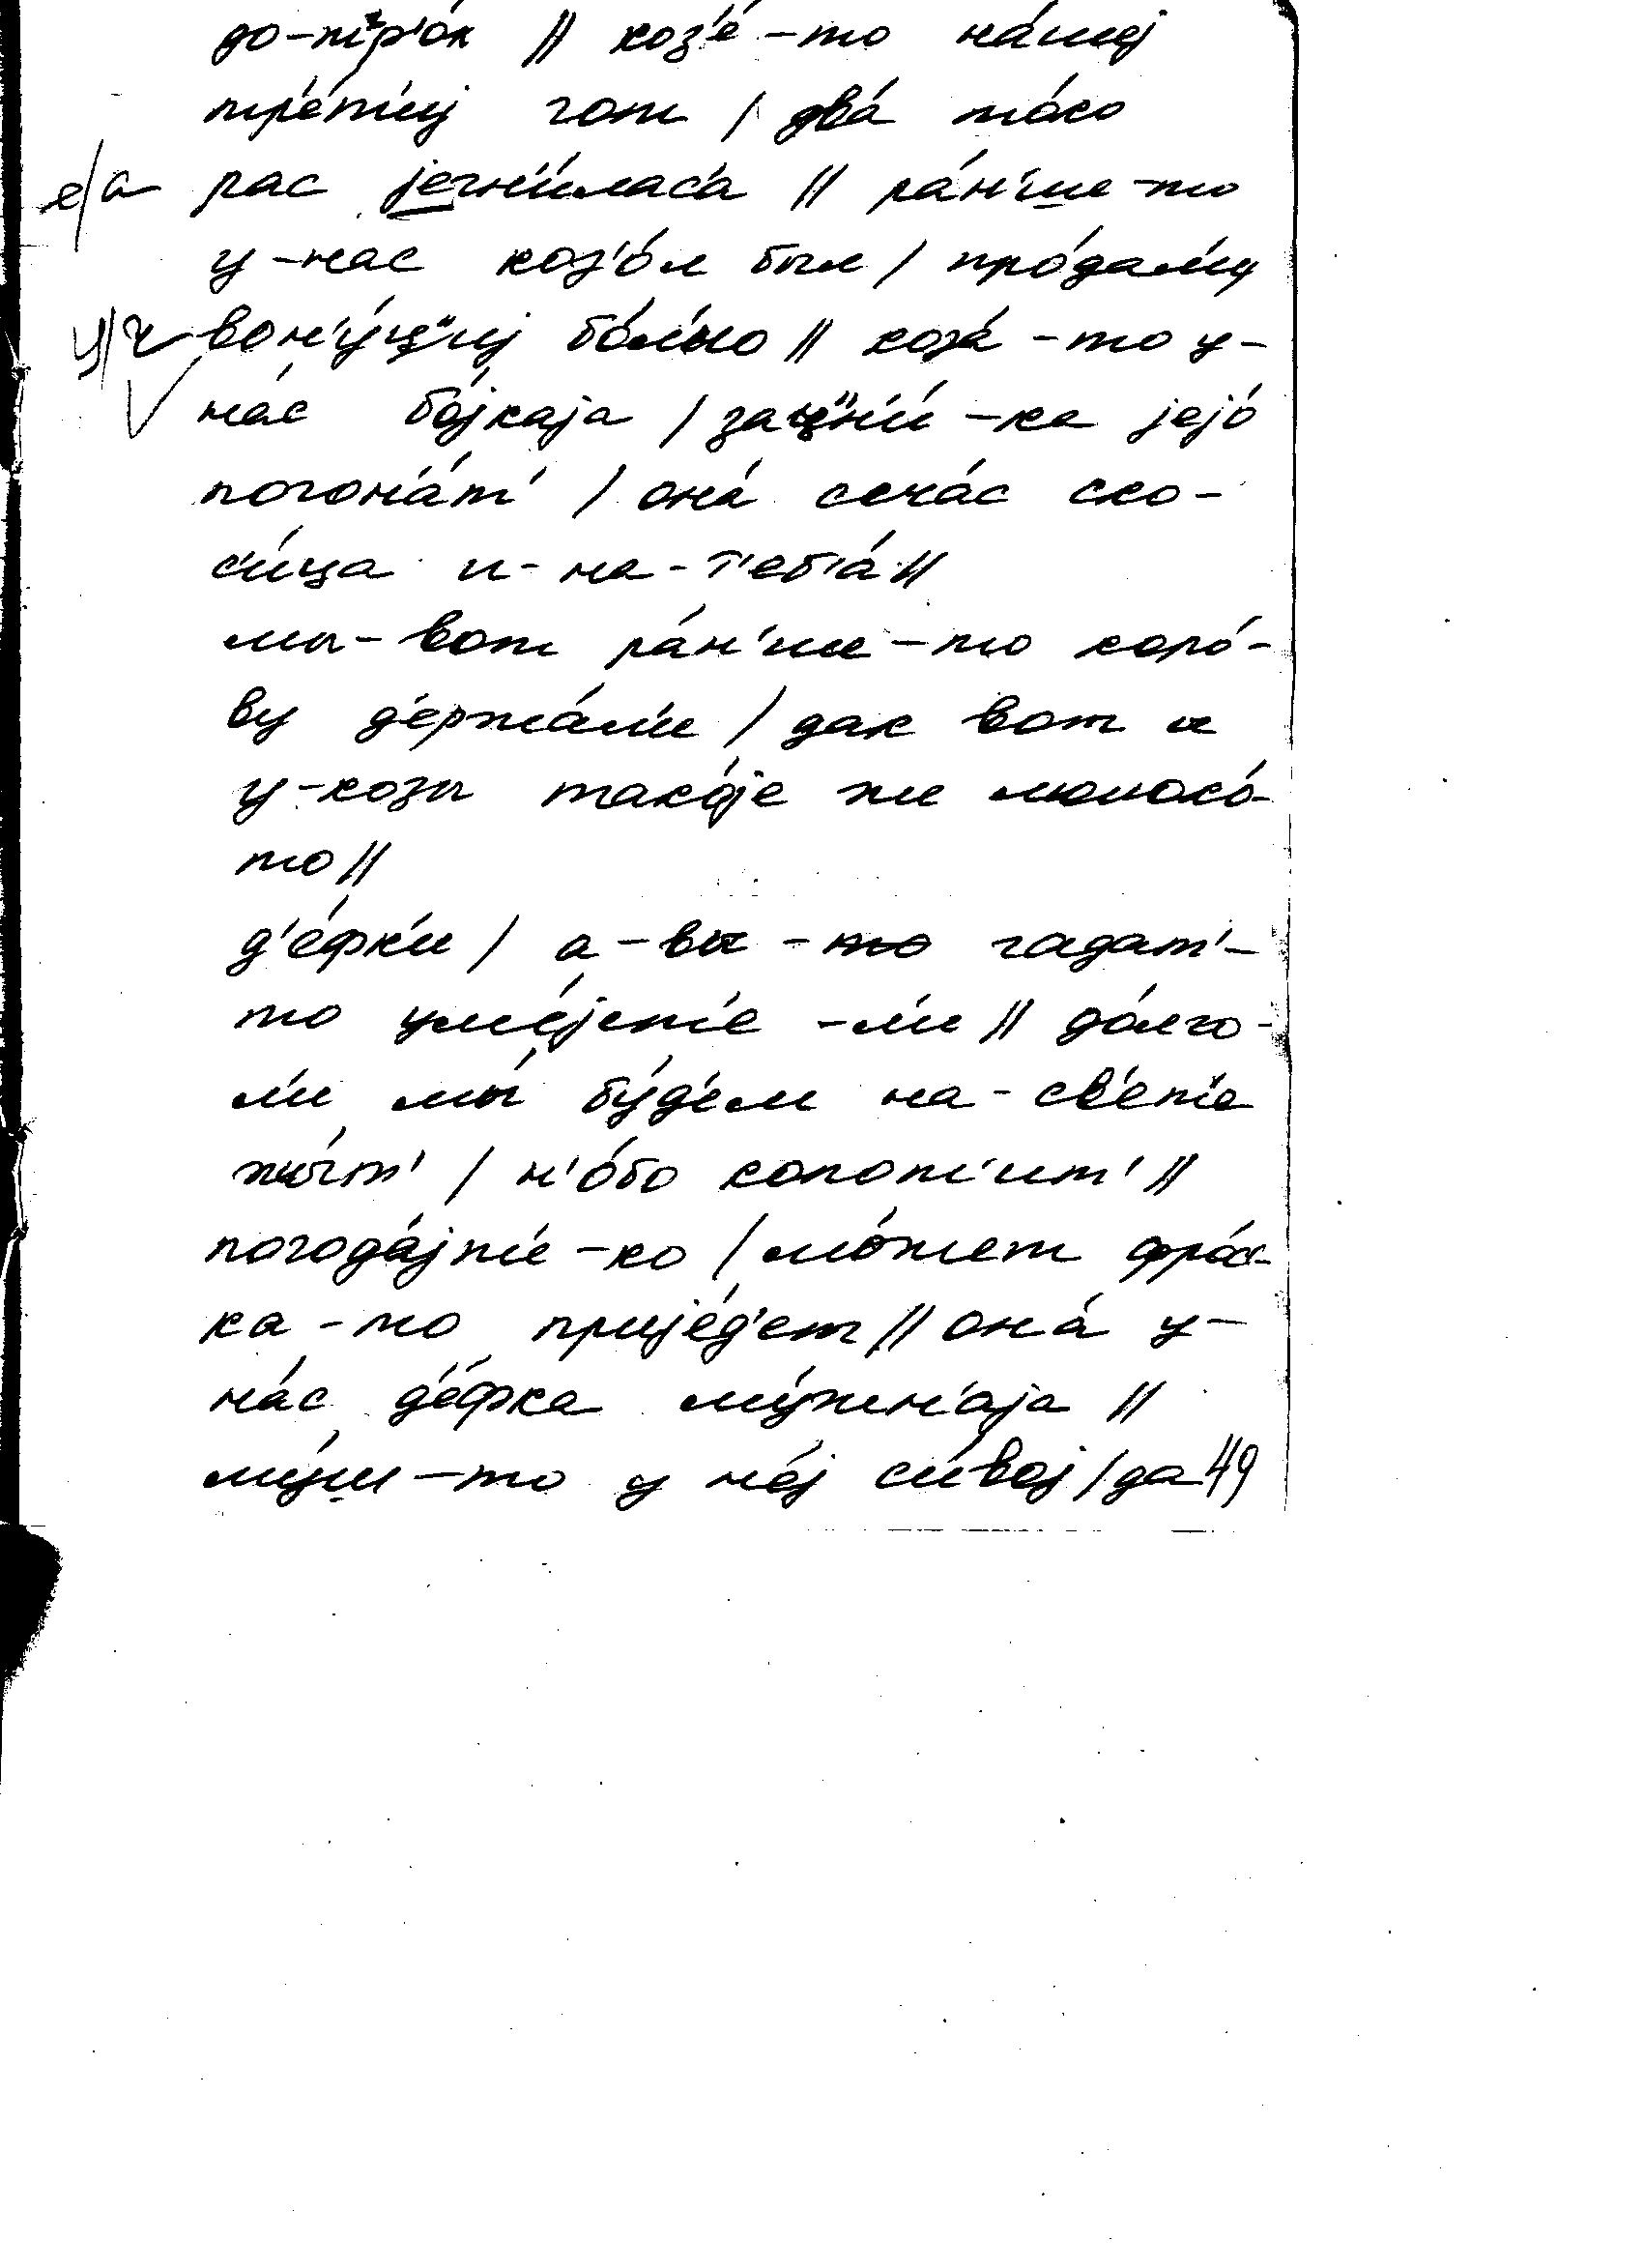 до-т'р'о́к // коз'е́-то на́шеj
тр'е́т'иj гот / два́ то́ко
е/а рас jегн'и́лас'а // ра́н'ше-то
у-нас коз'о́л был / про́дал'и
ц/ч вон'у́ц"иj бо́л'но // коза́-то у-
нас бо́jкаjа / зац"н'и́-ка jеjо́
погон'а́т' / она́ сечас ско-
с'и́ца и-на-т'еб'а́ //
мы-вот ра́н'ше-то коро́-
ву д'ержа́л'и / дак вот и
у-козы тако́jе же молоко́-
то //
д'е́фк'и / а-вы-то гадат'-
то уме́jет'е-л'и // до́лго-
л'и мы́ бу́д'ем на-св'ет'е
жы́т' / н'о́бо копот'ит' //
погода́jт'е-ко / мо́жет фро́с-
ка-то прије́д'ет // она́ у-
на́с д'е́фка му́жн'аjа //
му́ш-то у не́j с'и́воj / да 49